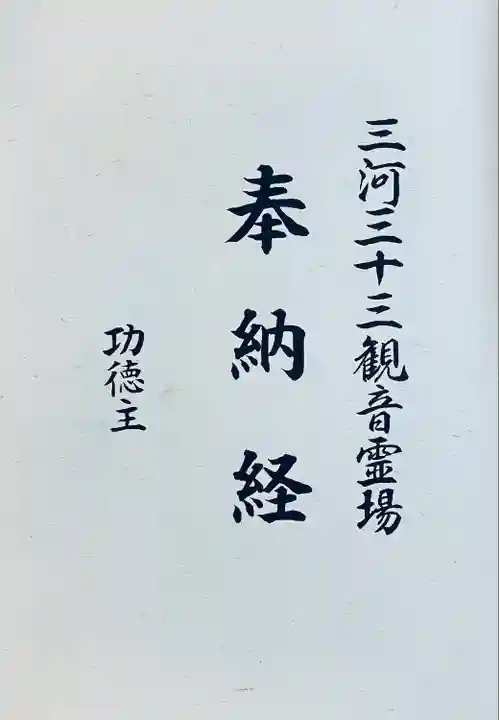 三河三十三観音霊場
奉納経
功徳主